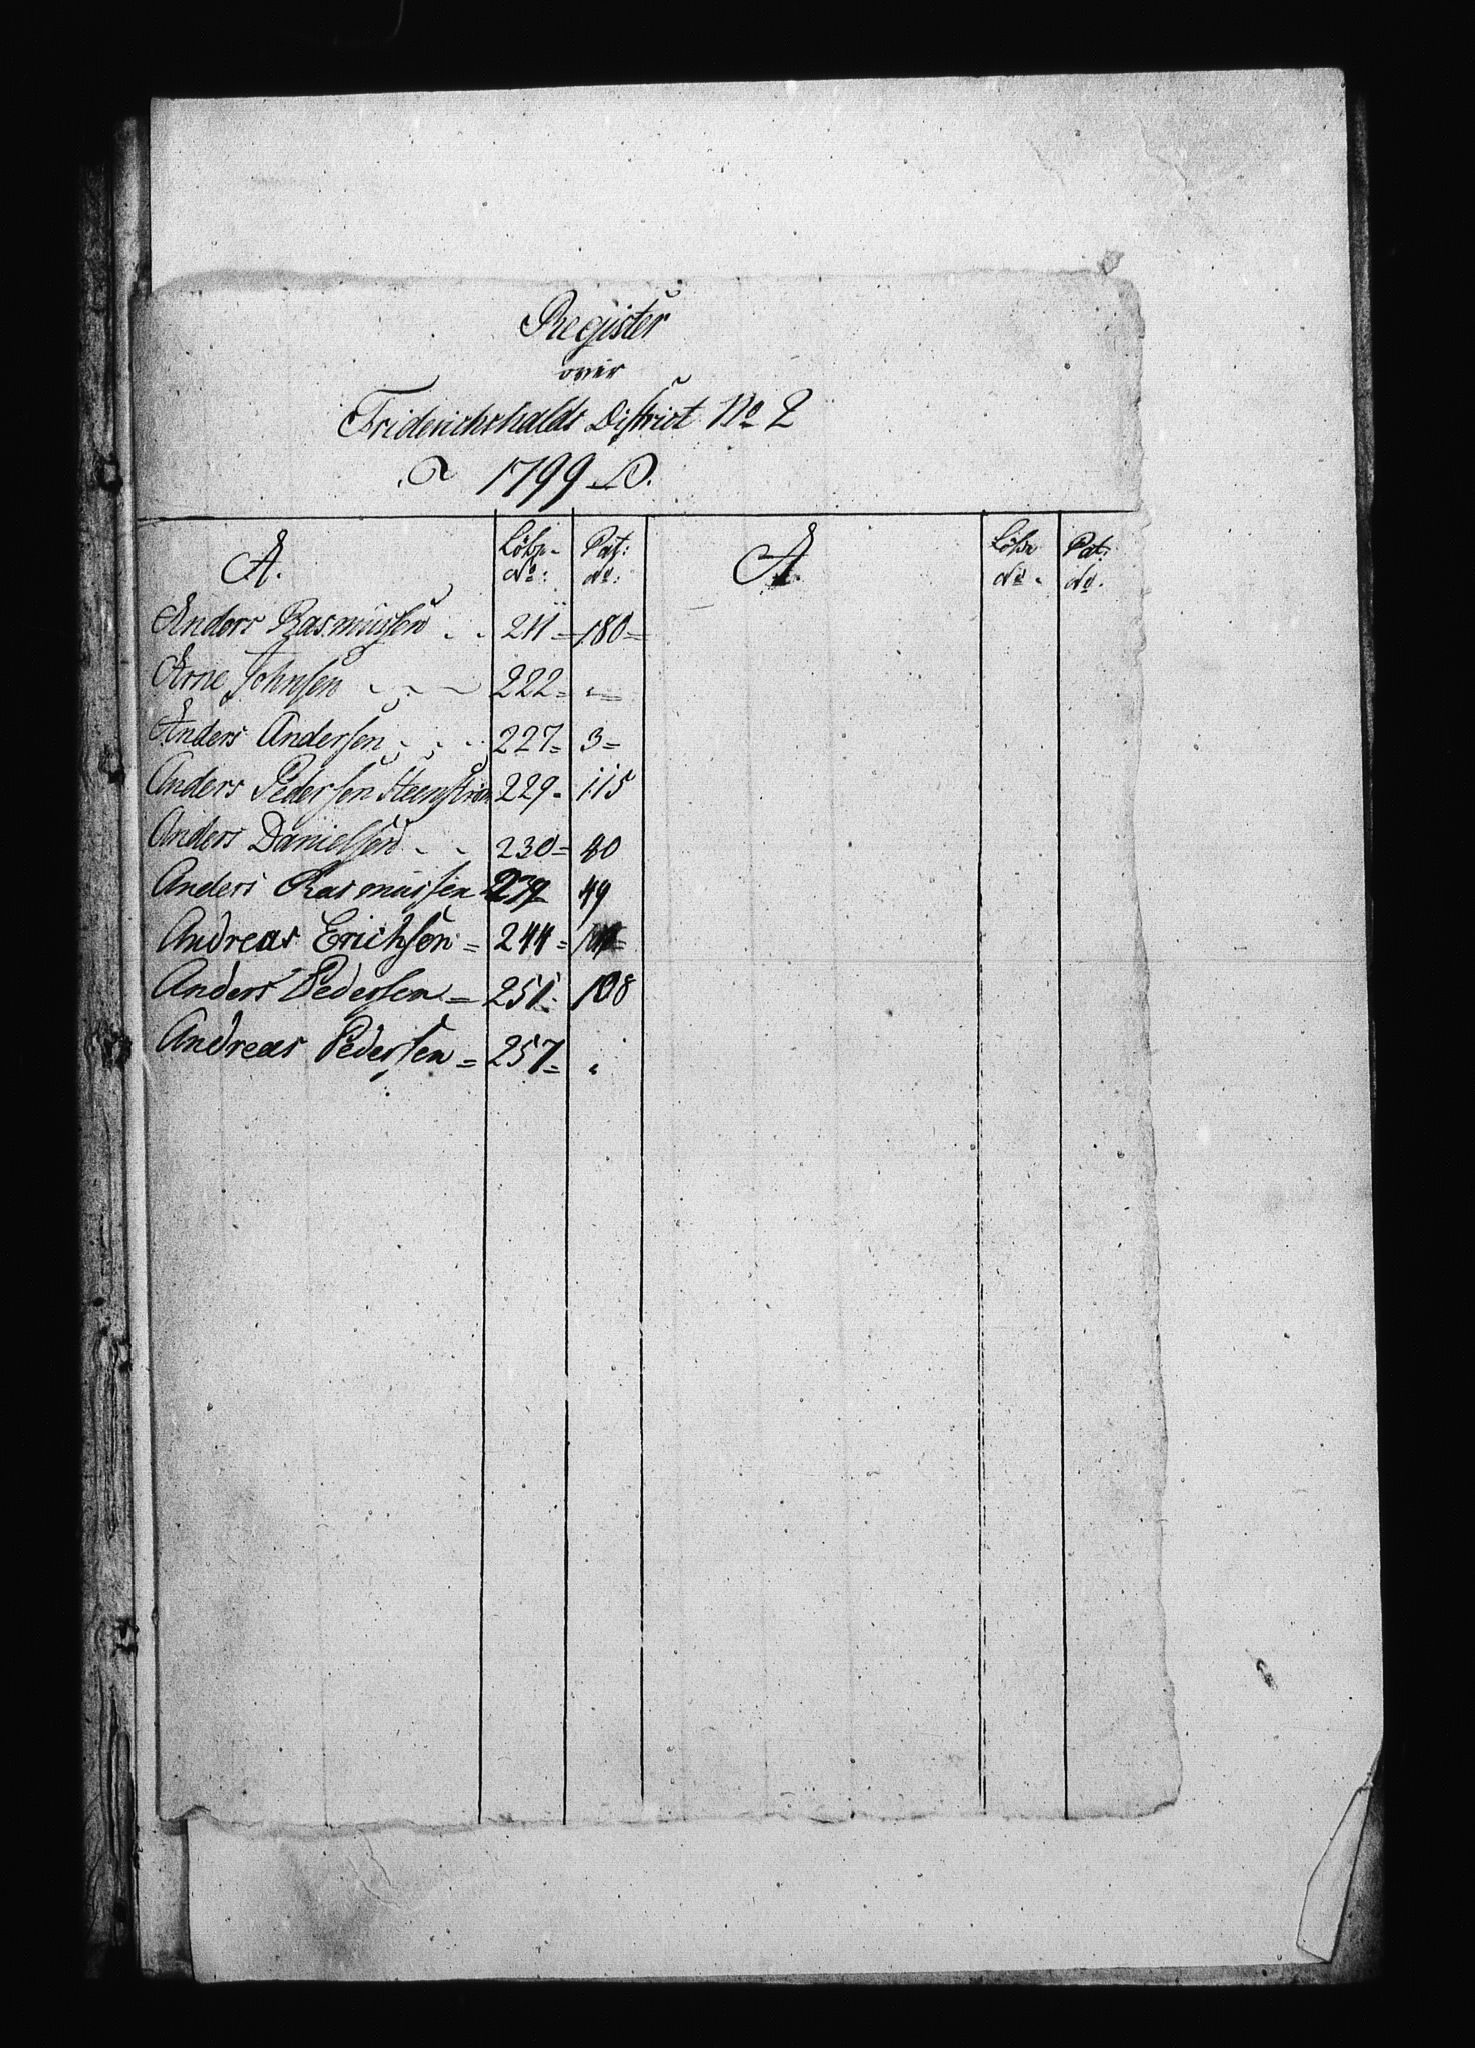 Register
over
Friderichshalds District No 2
1799
A. Löbe- No: Pat: No: A. Löbe No. Pat: No.
Anders Rasmussen - - 211 = 180 =
Arne Johnsen - - - 222 = " =
Anders Andersen - - - 227 = 3 =
Anders Pedersen 229 - 115
Anders Danielsen - - 230 = 80
Anders Rasmussen 49
Andreas Erichsen = 244 =
Anders Pedersen = 251 - 108
Andreas Pedersen = 257 = "